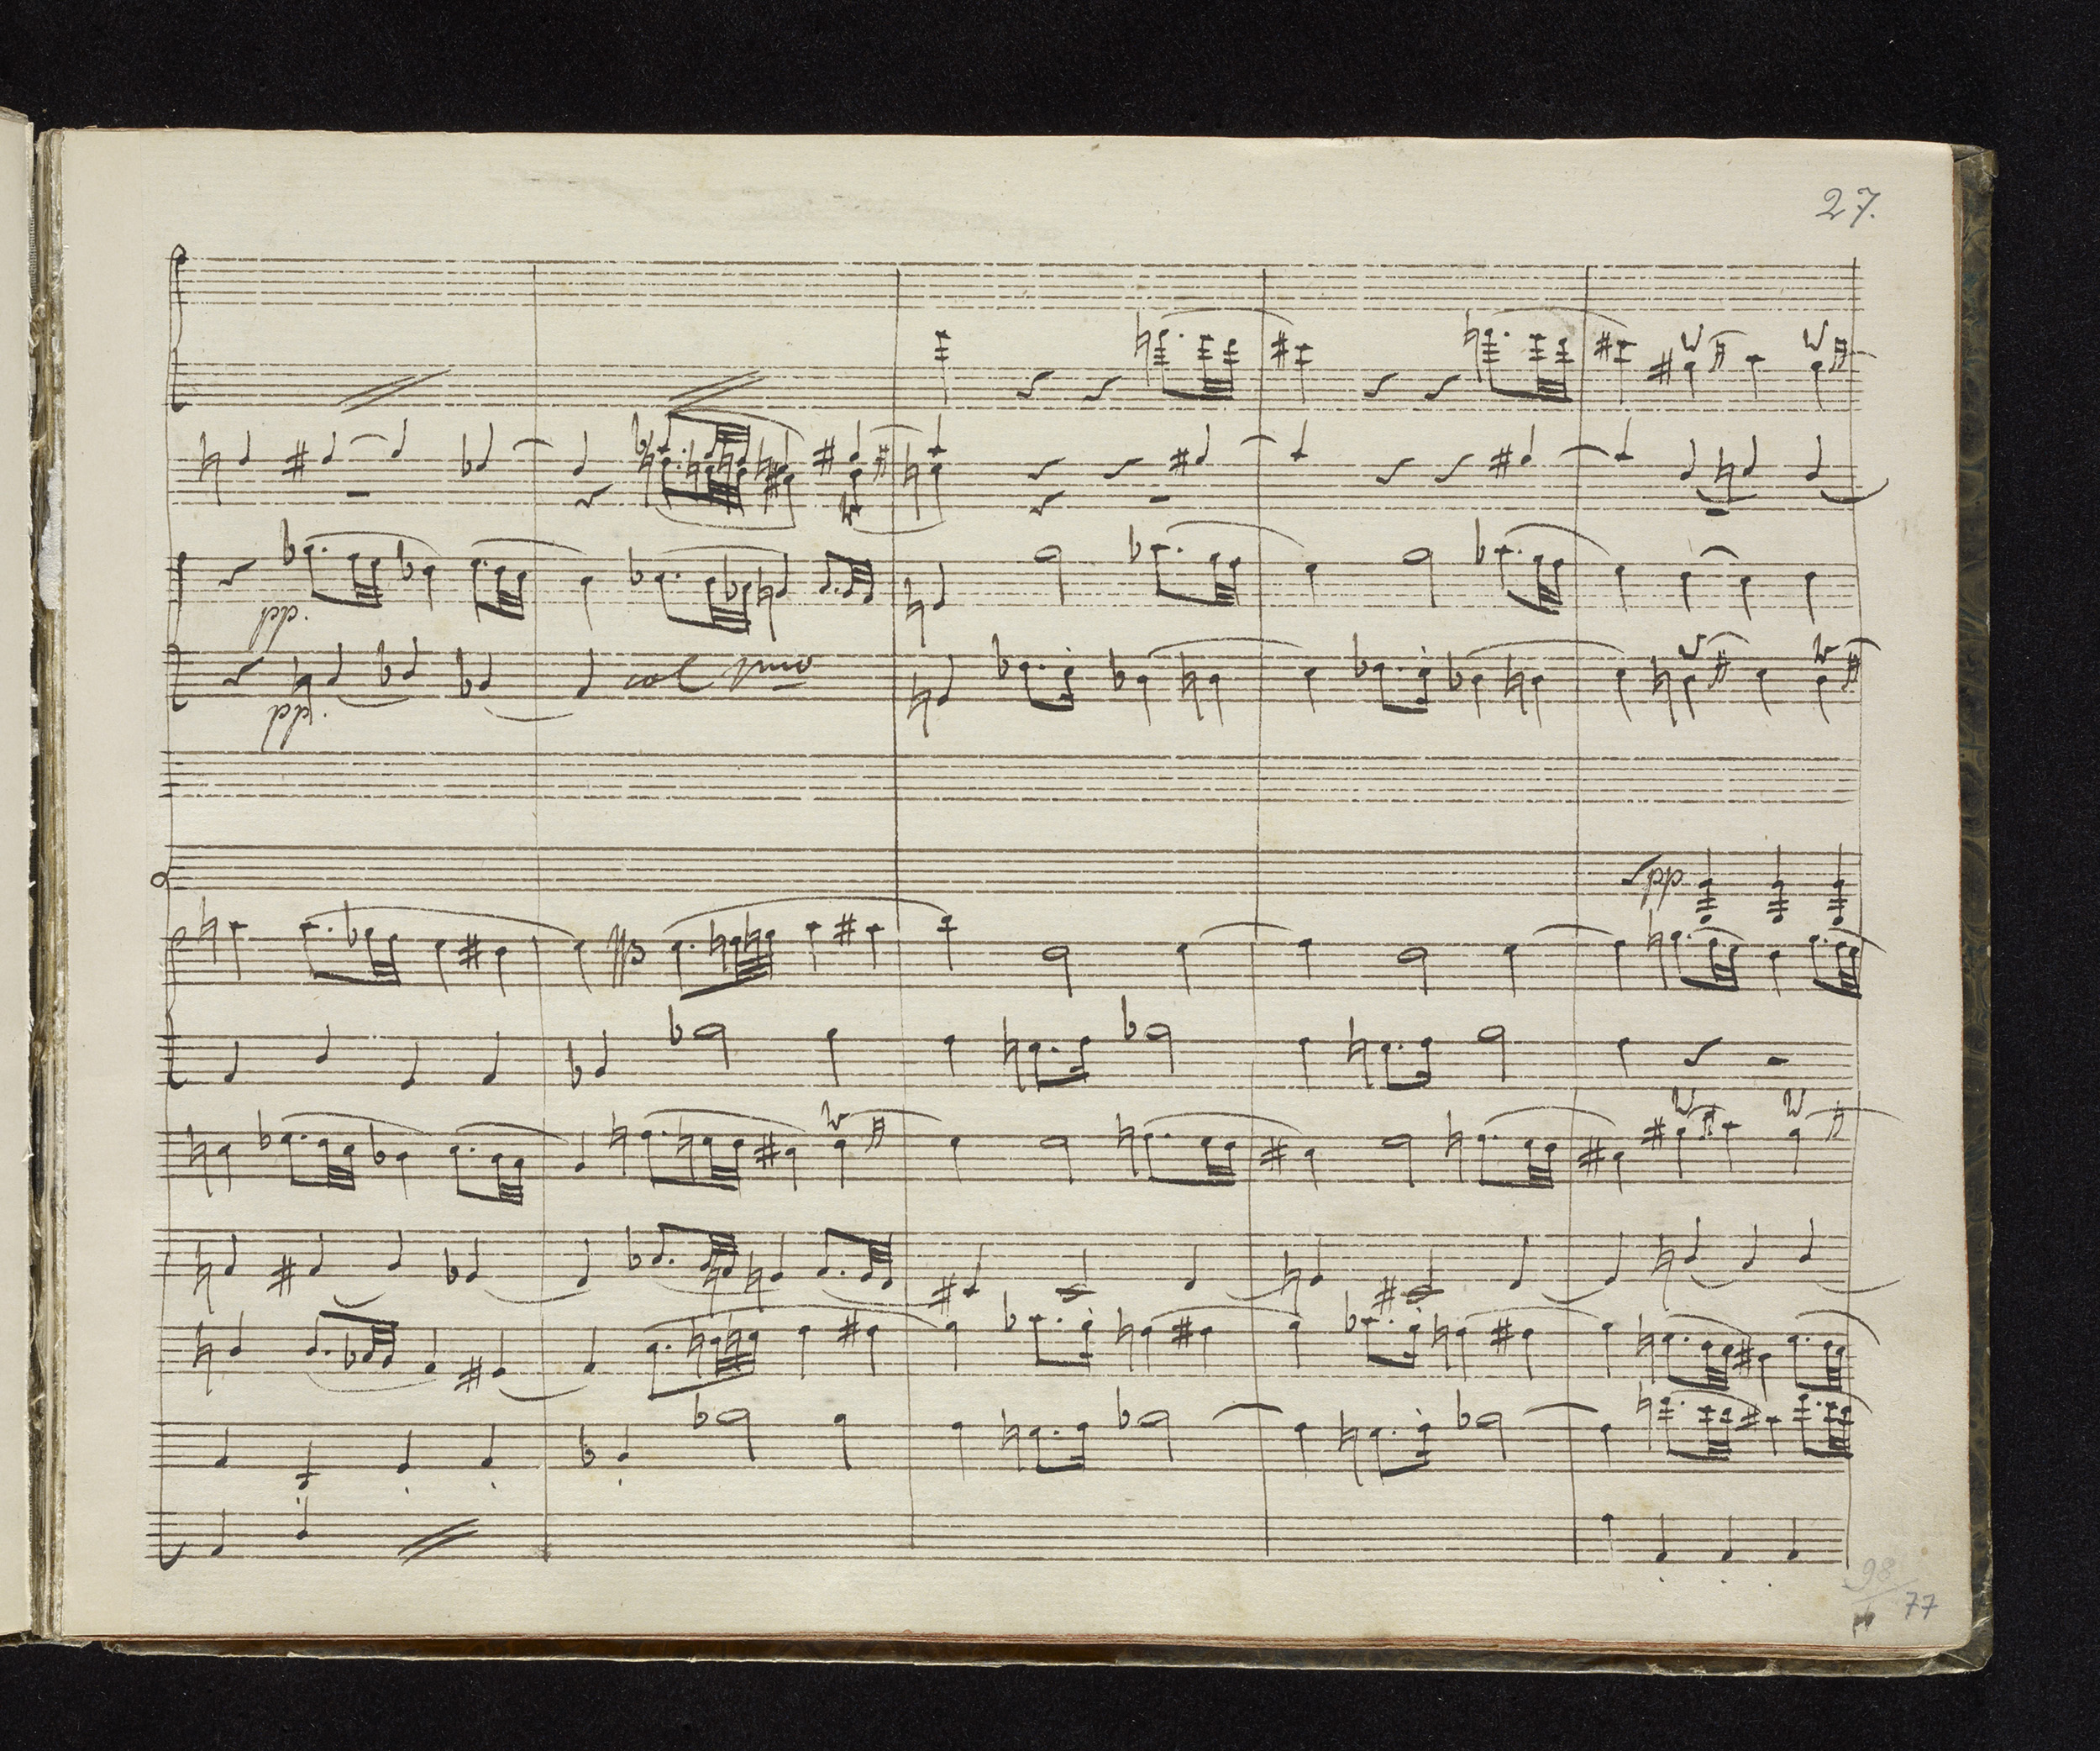 27.
pp.
pp.
col primo
pp
98
77